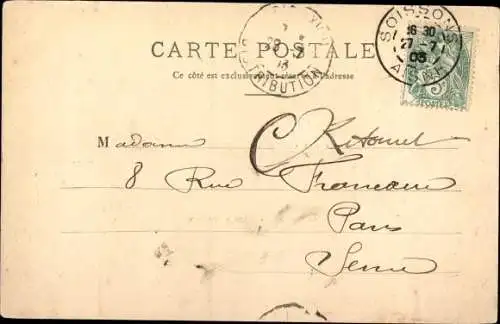 CARTE POSTALE
Ce côté est exclusivement réservé à l'adresse
SOISSONS
16 30
27 - 7
03
DISTRIBUTION
POSTES
Madame C Kitomel
8 Rue
Paris
Seine